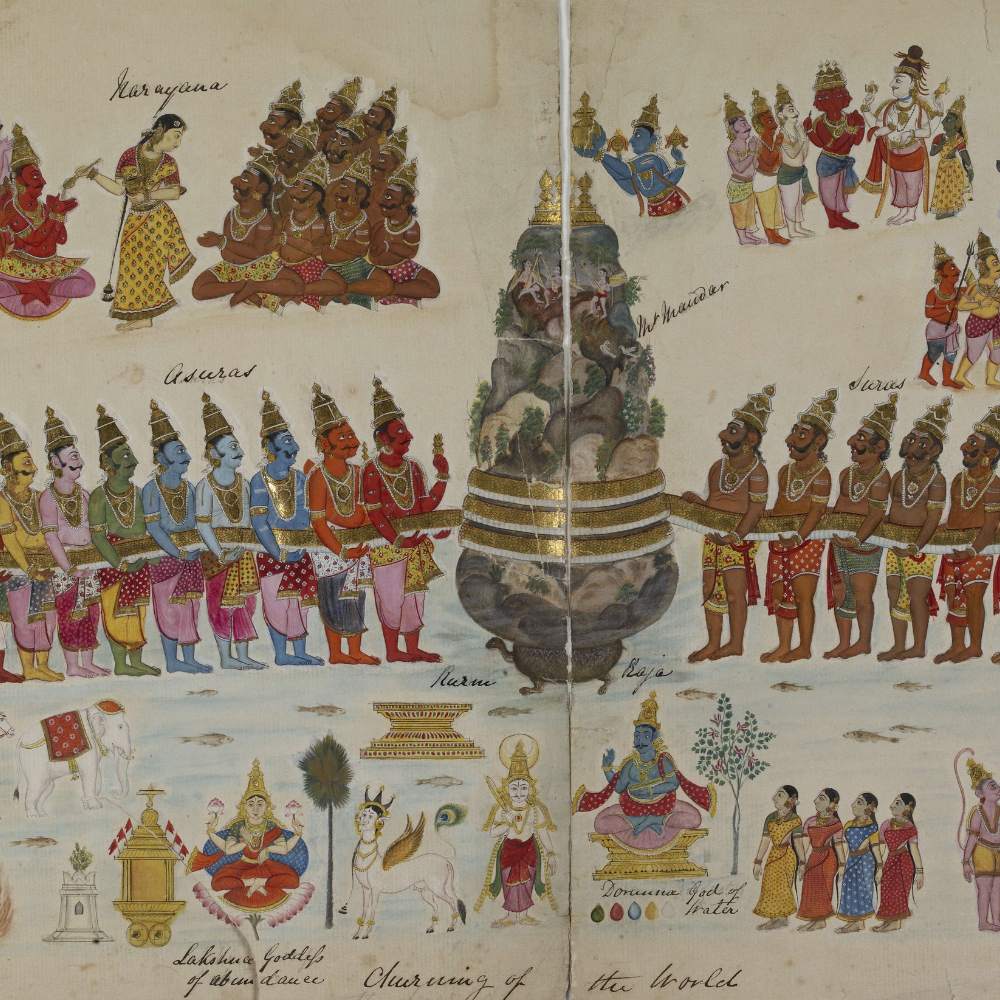 Narayana
Mt Mandar
Asuras
Suras
Kurm Raja
Dorunna God of
Water
Lakshua Goddess
of abundance
Churning of the World